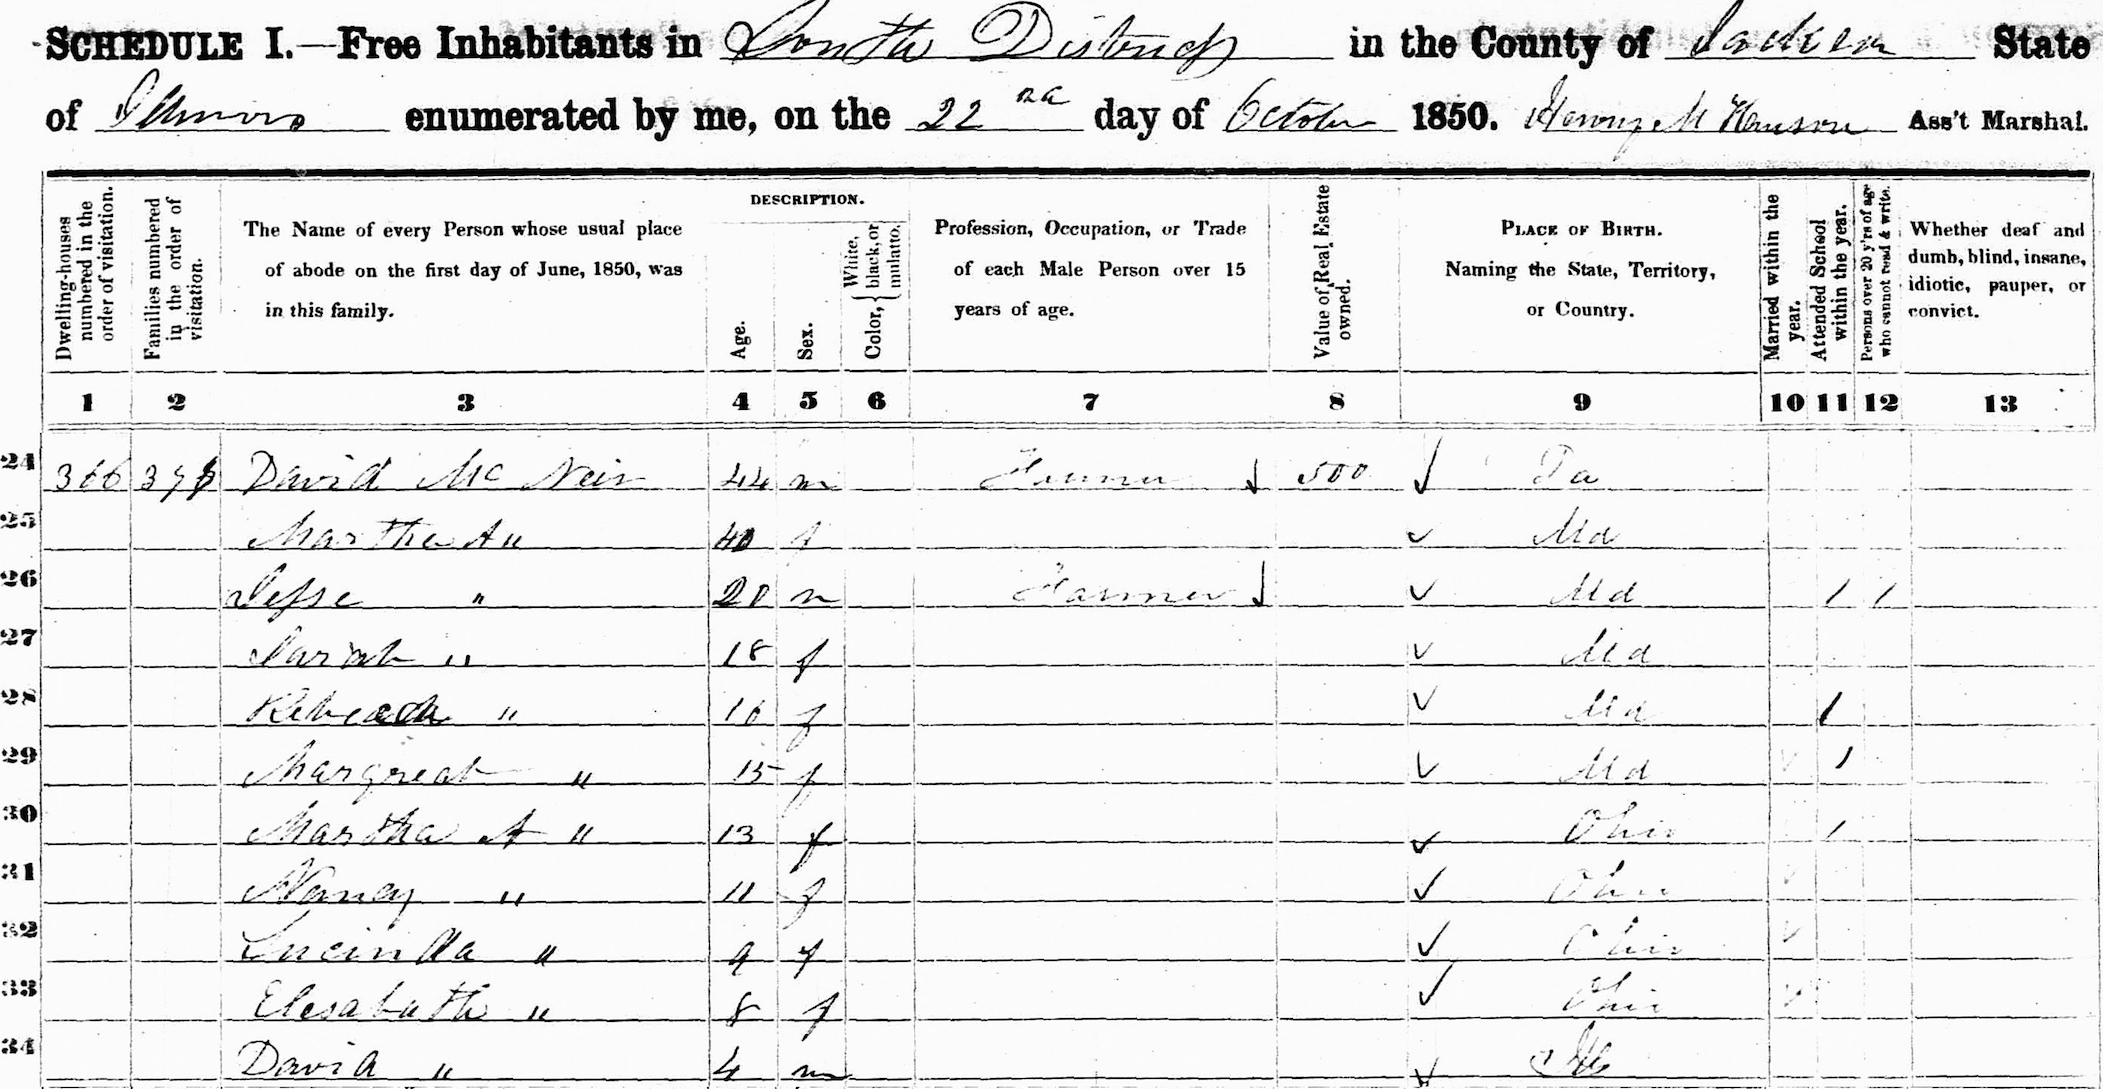 SCHEDULE I.—Free Inhabitants in South District in the County of Jackson State
of Illinois enumerated by me, on the 22nd day of October 1850. Henry M Hanson Ass't Marshal.
Dwelling-houses numbered in the order of visitation.
Families numbered in the order of visitation.
The Name of every Person whose usual place of abode on the first day of June, 1850, was in this family.
DESCRIPTION.
Age.
Sex.
White, black, or mulatto.
Color,
Profession, Occupation, or Trade of each Male Person over 15 years of age.
Value of Real Estate owned.
PLACE OF BIRTH. Naming the State, Territory, or Country.
Married within the year.
Attended School within the year.
Persons over 20 y'rs of age who cannot read & write.
Whether deaf and dumb, blind, insane, idiotic, pauper, or convict.
1 2 3 4 5 6 7 8 9 10 11 12 13
24 366 David Mc Neir 44 m Farmer 500 Pa
25 Martha A " 40 f Md
26 Jesse " 20 m Farmer Md 1 1
27 Sarah " 18 f Md
28 Rebecca " 16 f Md 1
29 Margreat " 15 f Md 1
30 Martha A " 13 f Ohio 1
31 Nancy " 11 f Ohio
32 Lucinda " 9 f Ohio
33 Elesabath " 8 f Ohio
34 David " 4 m Ill